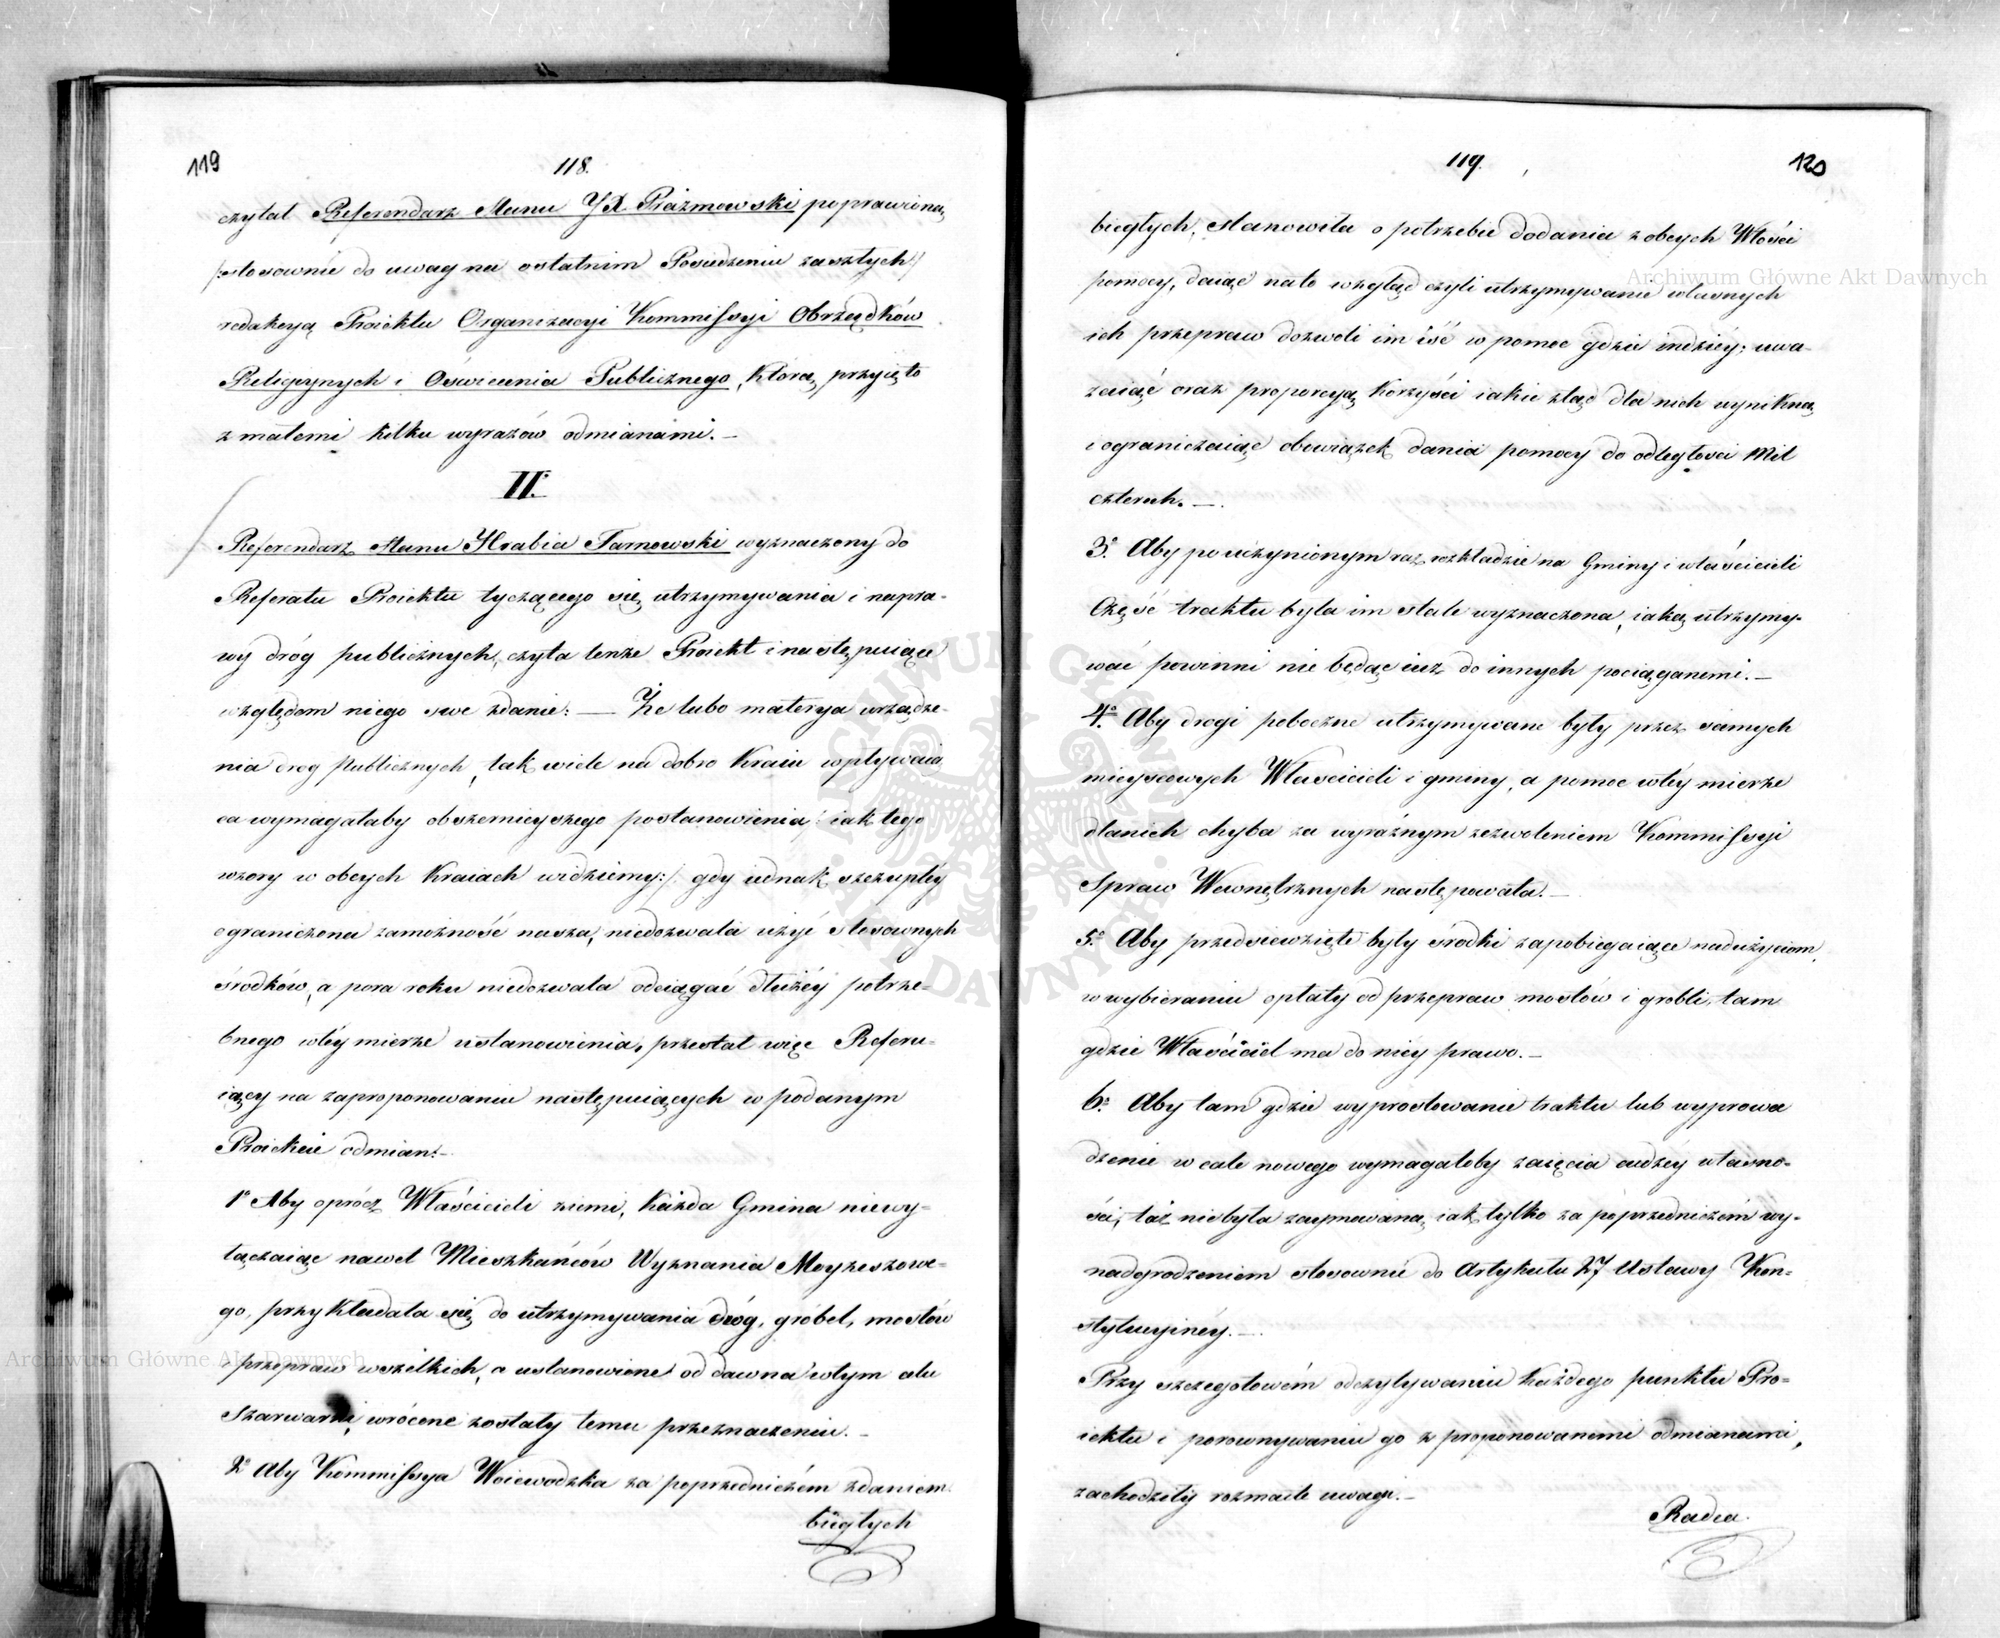 119
118.
czytał Referendarz Stanu JX Prażmowski poprawioną
/:stosownie do uwag na ostatnim Posiedzeniu zaszłych:/
redakcyą Proiektu Organizacyi Kommissyi Obrządków
Religiynych i Oświecenia Publicznego, którą przyięto
z małemi kilku wyrazów odmianami.—
II.
Referendarz Stanu Hrabia Tarnowski wyznaczony do
Referatu Proiektu tyczącego się utrzymywania i napra-
wy dróg publicznych, czyta tenże Proiekt i następuiące
względem niego swe zdanie: — Że lubo materya urządze-
nia dróg Publicznych, tak wiele na dobro Kraiu wpływaią
ca wymagałaby obszernieyszego postanowienia /: iak tego
wzory w obcych Kraiach widziemy:/ gdy iednak szczupłey
ograniczona zamożność nasza, niedozwala użyć stosownych
środków, a pora roku niedozwala odciągać dłużéy potrze-
bnego wtéy mierze ustanowienia, przestał więc Referu-
iący na zaproponowaniu następuiących w podanym
Proiekcie odmian:—
1° Aby oprócz Właścicieli ziemi, każda Gmina niewy-
łączaiąc nawet Mieszkańców Wyznania Moyżeszowe-
go, przykładała się do utrzymywania dróg, grobel, mostów
i przepraw wszelkich, a ustanowione od dawna wtym celu
Szarwarki, wrócone zostały temu przeznaczeniu.—
2° Aby Kommissya Woiewodzka za poprzedniczém zdaniem
biegłych
119.
120
biegłych, stanowiła o potrzebie dodania z obcych Włości
pomocy, daiąc na to wzgląd czyli utrzymywanie własnych
ich przepraw dozwoli im iść w pomoc gdzie indziéy; uwa-
żaiąc oraz proporcyą korzyści iakie ztąd dla nich wynikną
i ograniczaiąc obowiązek dania pomocy do odległości Mil
czterech.—
3° Aby po uczynionym raz rozkładzie na Gminy i właścicieli
Część traktu była im stale wyznaczona, iaką utrzymy-
wać powinni nie będąc iuż do innych pociąganemi.—
4° Aby drogi poboczne utrzymywane były przez samych
mieyscowych Właścicieli i gminy, a pomoc wtéy mierze
dla nich chyba za wyraźnym zezwoleniem Kommissyi
Spraw Wewnętrznych następowała.—
5° Aby przedsięwzięte były środki zapobiegaiące nadużyciom,
w wybieraniu opłaty od przepraw mostów i grobli, tam
gdzie Właściciel ma do niey prawo.—
6° Aby tam gdzie wyprostowanie traktu lub wyprowa
dzenie wcale nowego wymagałoby zaięcia cudzéy własno-
ści, taż niebyła zaymowaną iak tylko za poprzedniczém wy-
nadgrodzeniem stosownie do Artykułu 27 Ustawy Kon-
stytucyinéy.—
Przy szczegółowém odczytywaniu każdego punktu Pro-
iektu i porownywaniu go z proponowanemi odmianami,
zachodziły rozmaite uwagi.—
Radca.
Archiwum Główne Akt Dawnych
Archiwum Główne Akt Dawnych
ARCHIWUM GŁÓWNE AKT DAWNYCH